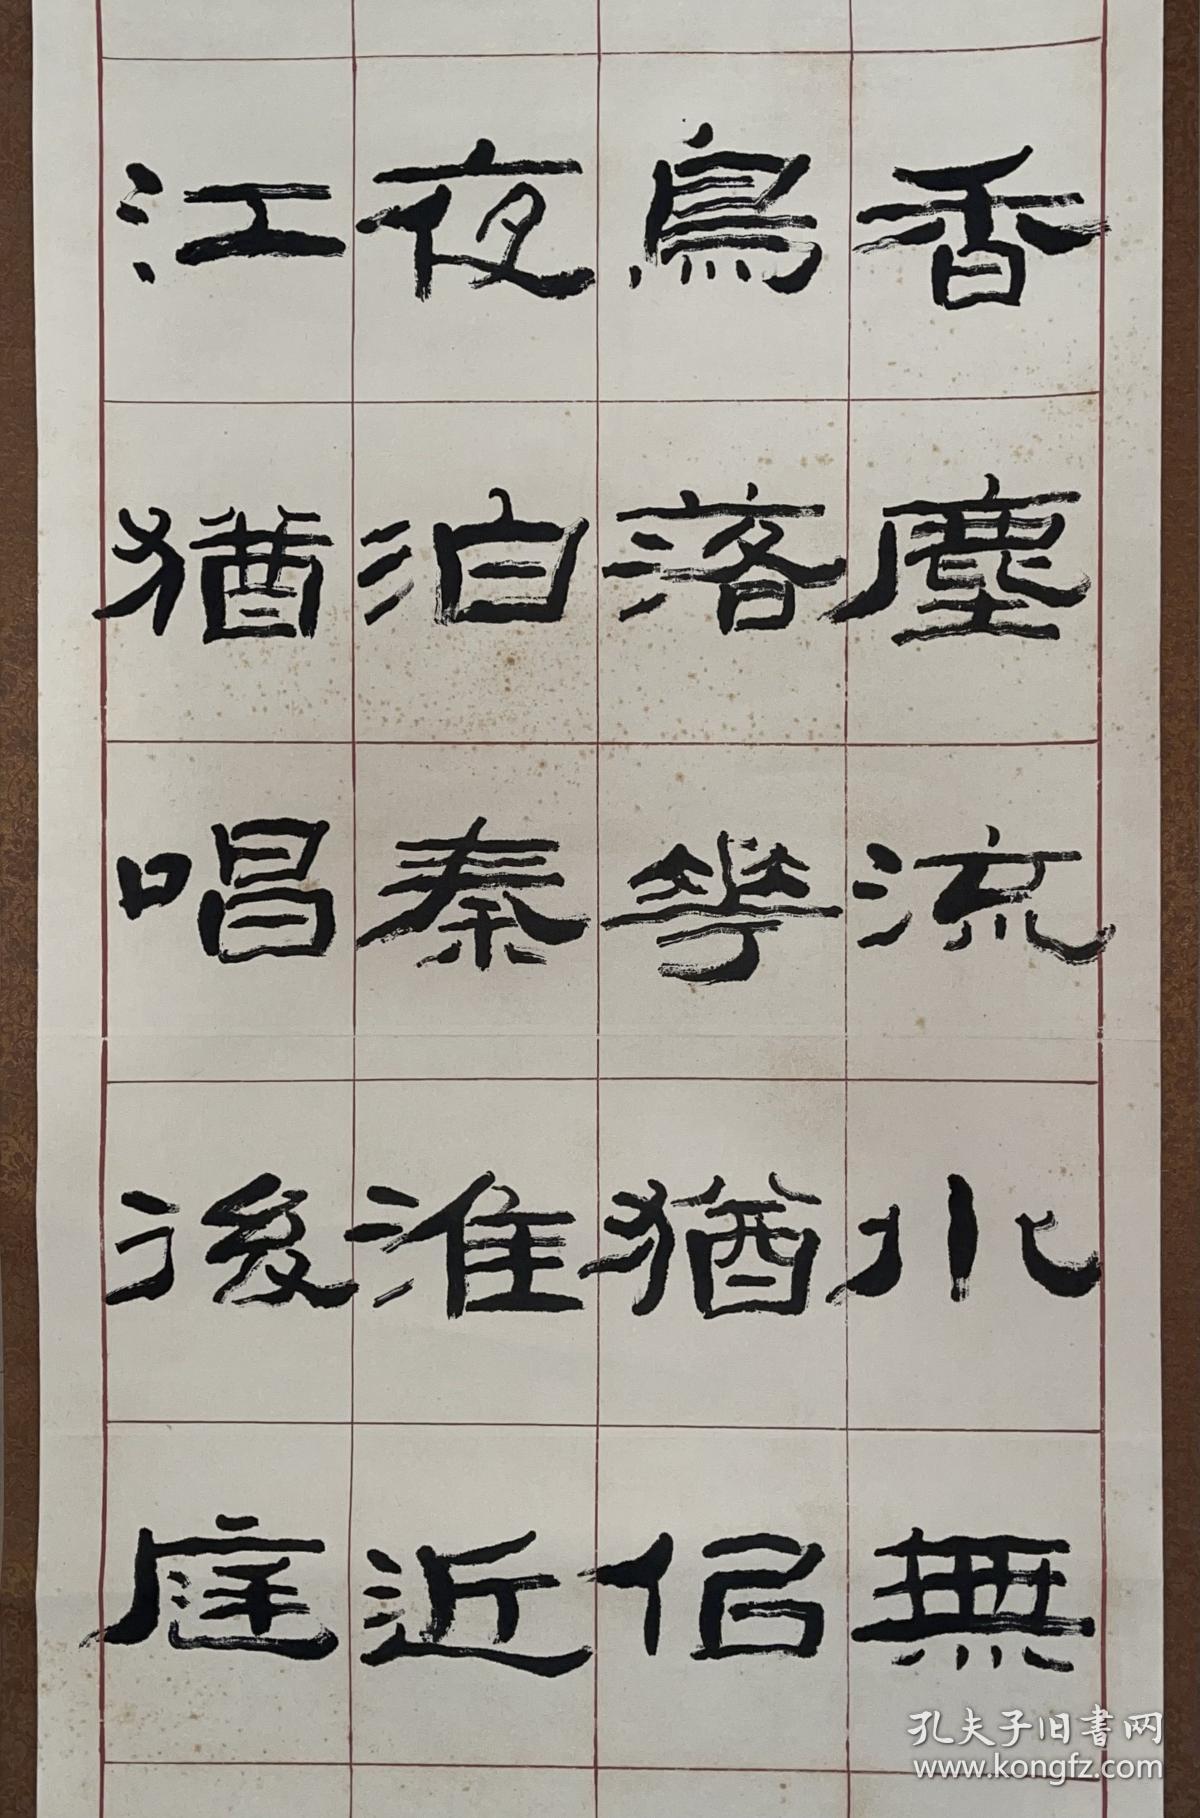 香塵流水無
鳥落華猶佀
夜泊秦淮近
江猶唱後庭
孔夫子旧书网
www.kongfz.com